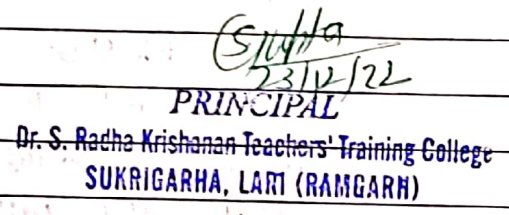 23/12/22
PRINCIPAL
Dr. S. Radha Krishanan Teachers' Training College
SUKRIGARHA, LARI (RAMGARH)